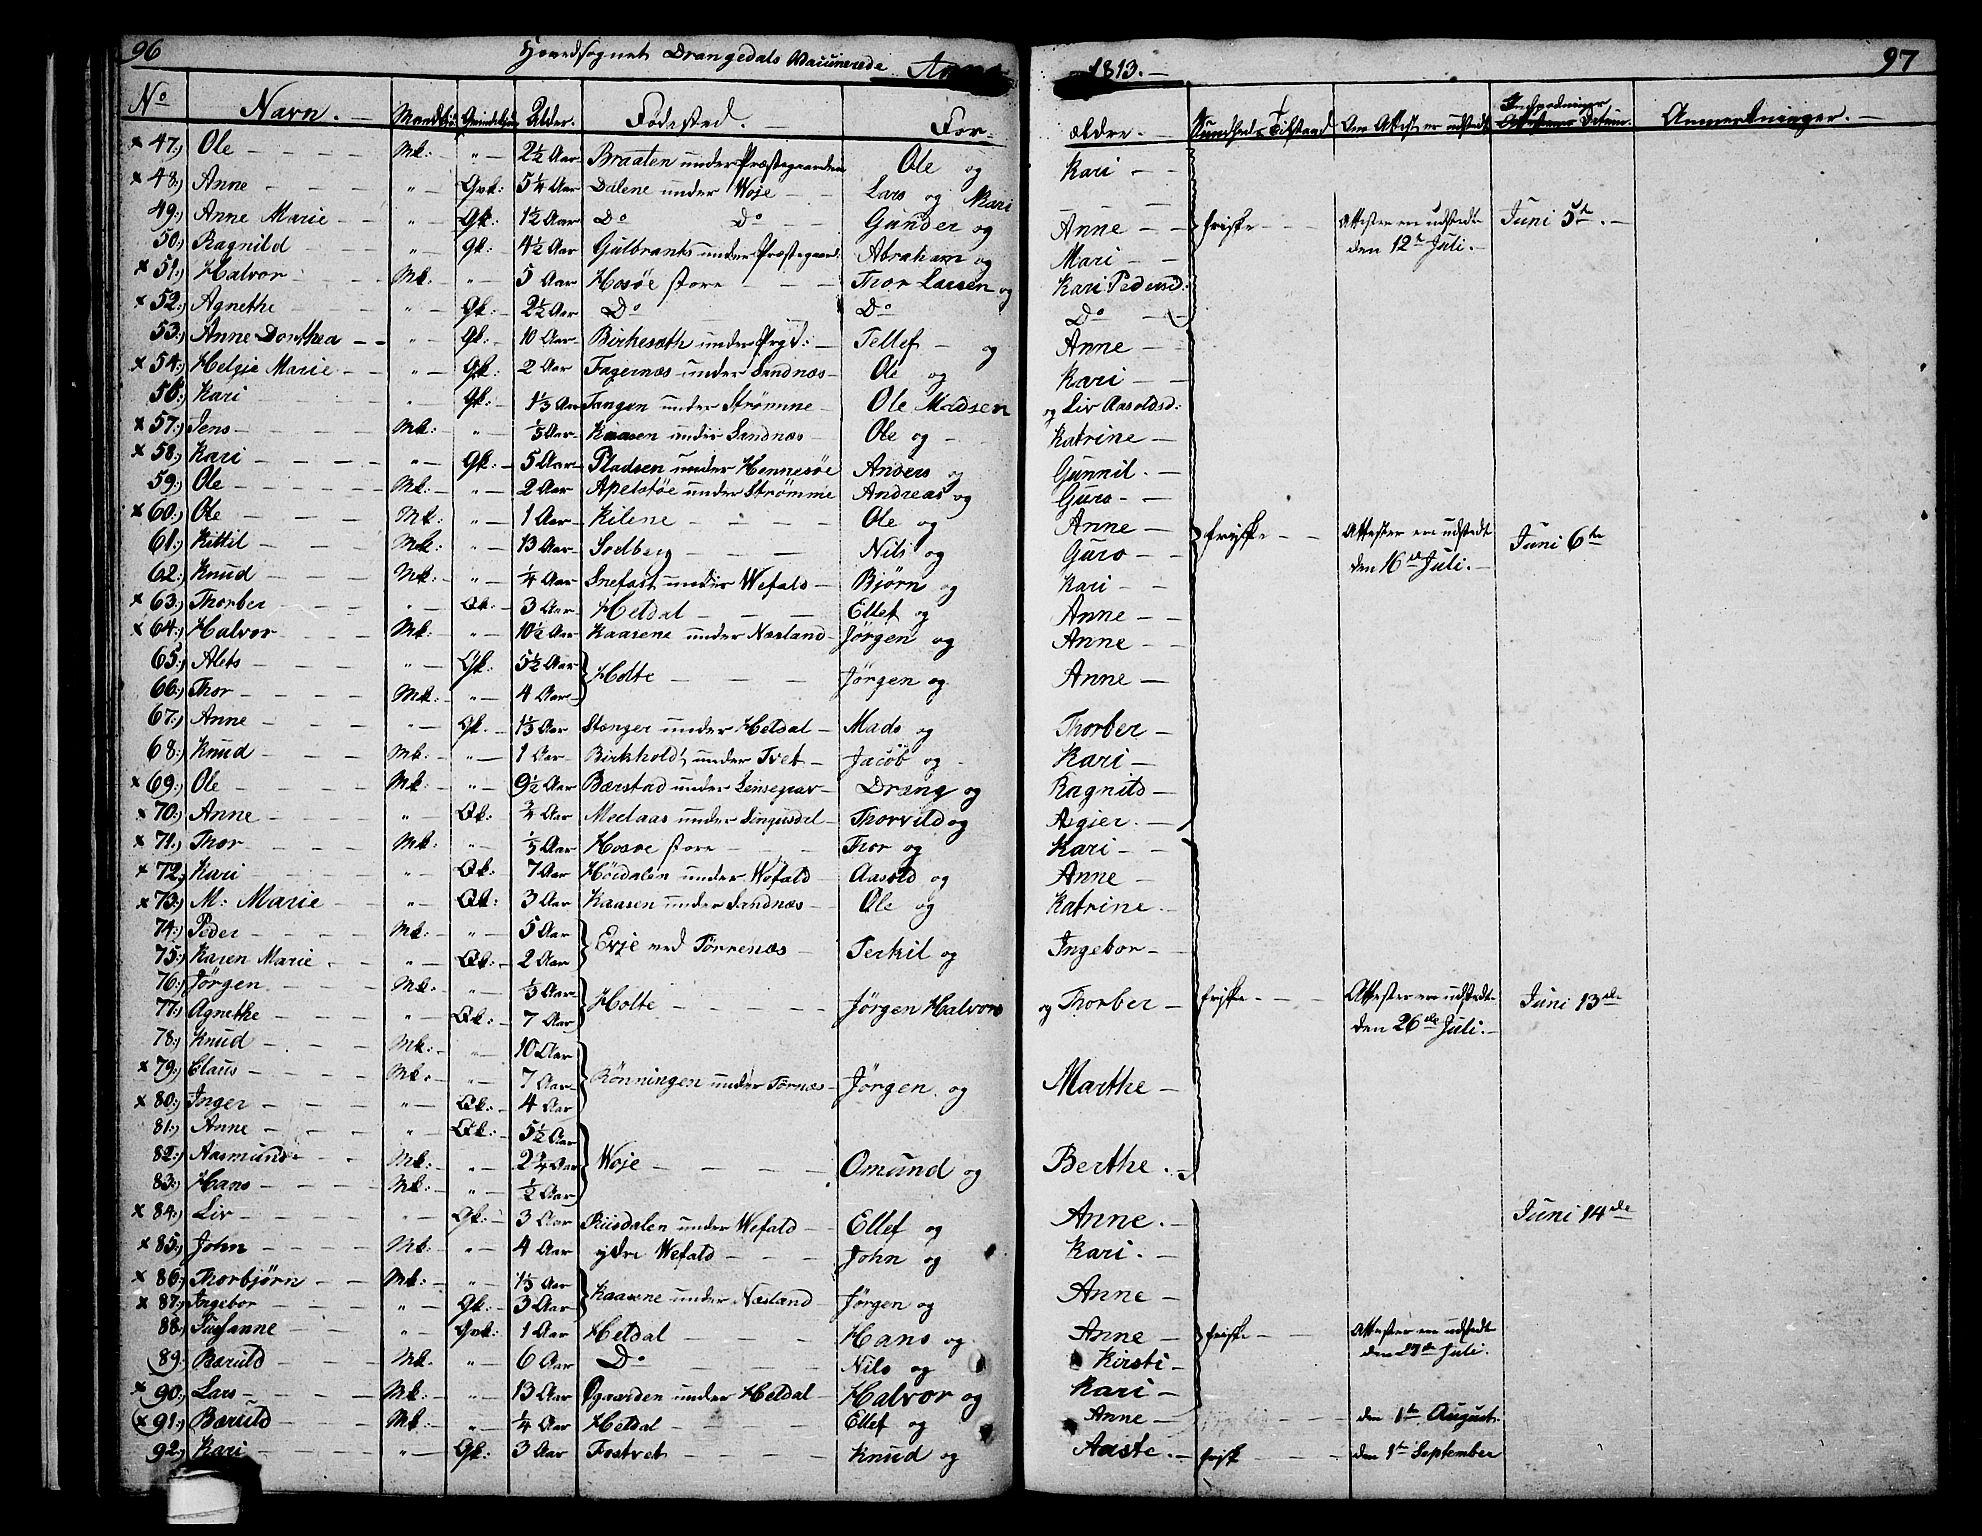 96 Hovedsognet Drangedals Vaccinerede Anno 1813. 97
No Navn. Mandkiøn Qvindekiøn Alder. Fødested. Forældre. Sundheds Tilstand Om Attest er udstedt Indpodnings Datum. Anmerkninger.
x 47:) Ole Mk: " 2½ Aar Braaten under Præstegaarden Ole og Kari
x 48:) Anne " Qvk: 5¼ Aar Dalene under Woje Lars og Kari
49:) Anne Marie " Qk: 1½ Aar Do Do Gunder og Anne friske Attester ere udstedt den 12te Juli. Juni 5te
50:) Ragnild " Qk: 4½ Aar Gulbrants under Præstegaard: Abraham og Mari
x 51:) Halvor Mk: " 5 Aar Hosøe store Thor Larsen og Kari Pedersd:
x 52:) Agnethe " Qk: 2½ Aar Do Do Do
53:) Anne Dorthea " Qk: 10 Aar Birkesæth under Prgd: Tellef og Anne
x 54:) Helgje Marie " Qk: 2 Aar Fagernæs under Sandnæs Ole og Kari
56:) Kari " Qk: 1⅓ Aar Tangen under Strømme Ole Madsen og Liv Aasoldsd:
x 57:) Jens Mk: " ⅓ Aar Kaasen under Sandnæs Ole og Katrine
x 58:) Kari " Qk: 5 Aar Pladsen under Hennesøe Anders og Gunnil.
59:) Ole Mk: " 2 Aar Apelstøe under Strømme Andreas og Guro
x 60:) Ole Mk: " 1 Aar Kilene Ole og Anne friske Attester ere udstedt den 16de Juli. Juni 6te
61:) Kittil Mk: " 13 Aar Solberg Nils og Guro
62:) Knud Mk: " ¼ Aar Snefast under Wefald Bjørn og Kari
x 63:) Thorber " Qk: 3 Aar Heldal Ellef og Anne
x 64:) Halvor Mk: " 10½ Aar Kaasene under Næsland Jørgen og Anne
65:) Alets " Qk: 5½ Aar Holte Jørgen og Anne
66:) Thor Mk: " 4 Aar
67:) Anne " Qk: 1⅓ Aar Stenger under Heldal Mads og Thorber
68:) Knud Mk: " 1 Aar Birkhold under Tvet Jacob og Kari
x 69:) Ole Mk: " 9½ Aar Bærstad under Drang og Ragnild
x 70:) Anne " Qk: ¾ Aar Medaas under Thorvild og Asgier.
x 71:) Thor Mk: " ⅓ Aar Hosøe store Thor og Kari
x 72:) Kari " Qk: 7 Aar Høidalen under Wefald Aasold og Anne
x 73:) M: Marie " Qk: 3 Aar Kaasen under Sandnæs Ole og Katrine
74:) Peder Mk: " 5 Aar Evje ved Tørrenæs Terkil og Ingebor
75:) Karen Marie " Qk: 2 Aar
76:) Jørgen Mk: " ⅓ Aar Holte Jørgen Halvors og Thorber friske Attester ere udstedt den 26de Juli. Juni 13de
77:) Agnethe " Qk: 7 Aar
78:) Knud Mk: " 10 Aar Rønningen under Tørnæs Jørgen og Marthe
x 79:) Claus Mk: " 7 Aar
x 80:) Inger " Qk: 4 Aar
81:) Anne " Qk: 5½ Aar Woje Omund og Berthe.
82:) Aasmund Mk: " 2¾ Aar
83:) Hans Mk: " ½ Aar
x 84:) Liv " Qk: 3 Aar Riisdalen under Wefald Ellef og Anne. Juni 14de
x 85:) John Mk: " 4 Aar ydre Wefald John og Kari.
x 86:) Thorbjørn Mk: " 1⅓ Aar Kaasene under Næsland Jørgen og Anne
x 87:) Ingebor " Qk: 3 Aar
88:) Susanne " Qvk: 1 Aar Heldal Hans og Anne friske Attester ere udstedt den 27de Juli.
89:) Bæruld Mk: " 6 Aar Do Nils og Kirsti
x 90:) Lars Mk: " 13 Aar Øgaarden under Heldal Halvor og Kari
x 91:) Bæruld Mk: " ¼ Aar Heldal Ellef og Anne den 1te August.
92:) Kari " Qk: 3 Aar Fostvet Knud og Aaste. frisk den 1te September